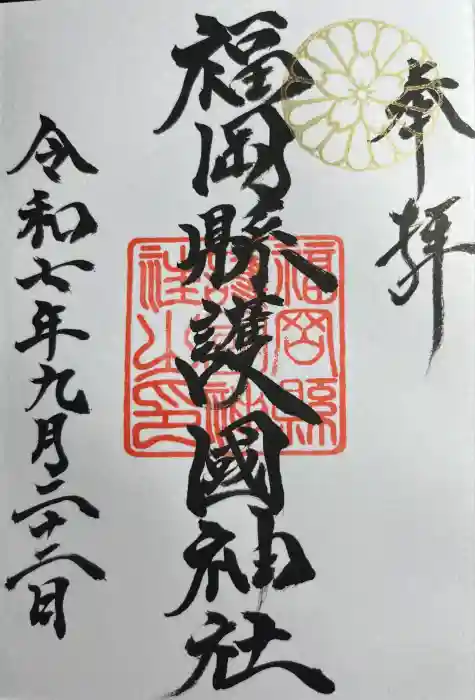 奉拝
福岡縣護國神社
福岡縣
護國神社
社之印
令和七年九月二十二日